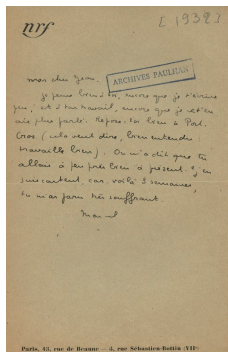 nrf
[1938]
ARCHIVES PAULHAN
mon cher Jean,
je pense bien à toi, encore que je t'écrive
peu, et à ton travail, encore que je ne t'en
aie plus parlé. Repose-toi bien à Port-
Cros. (cela veut dire, bien entendu
travaille bien). On m'a dit que tu
allais à peu près bien à présent. J'en
suis content car, voilà 3 semaines,
tu m'as paru très souffrant.
Marcel
Paris, 43, rue de Beaune — 5, rue Sébastien-Bottin (VIIᵉ)